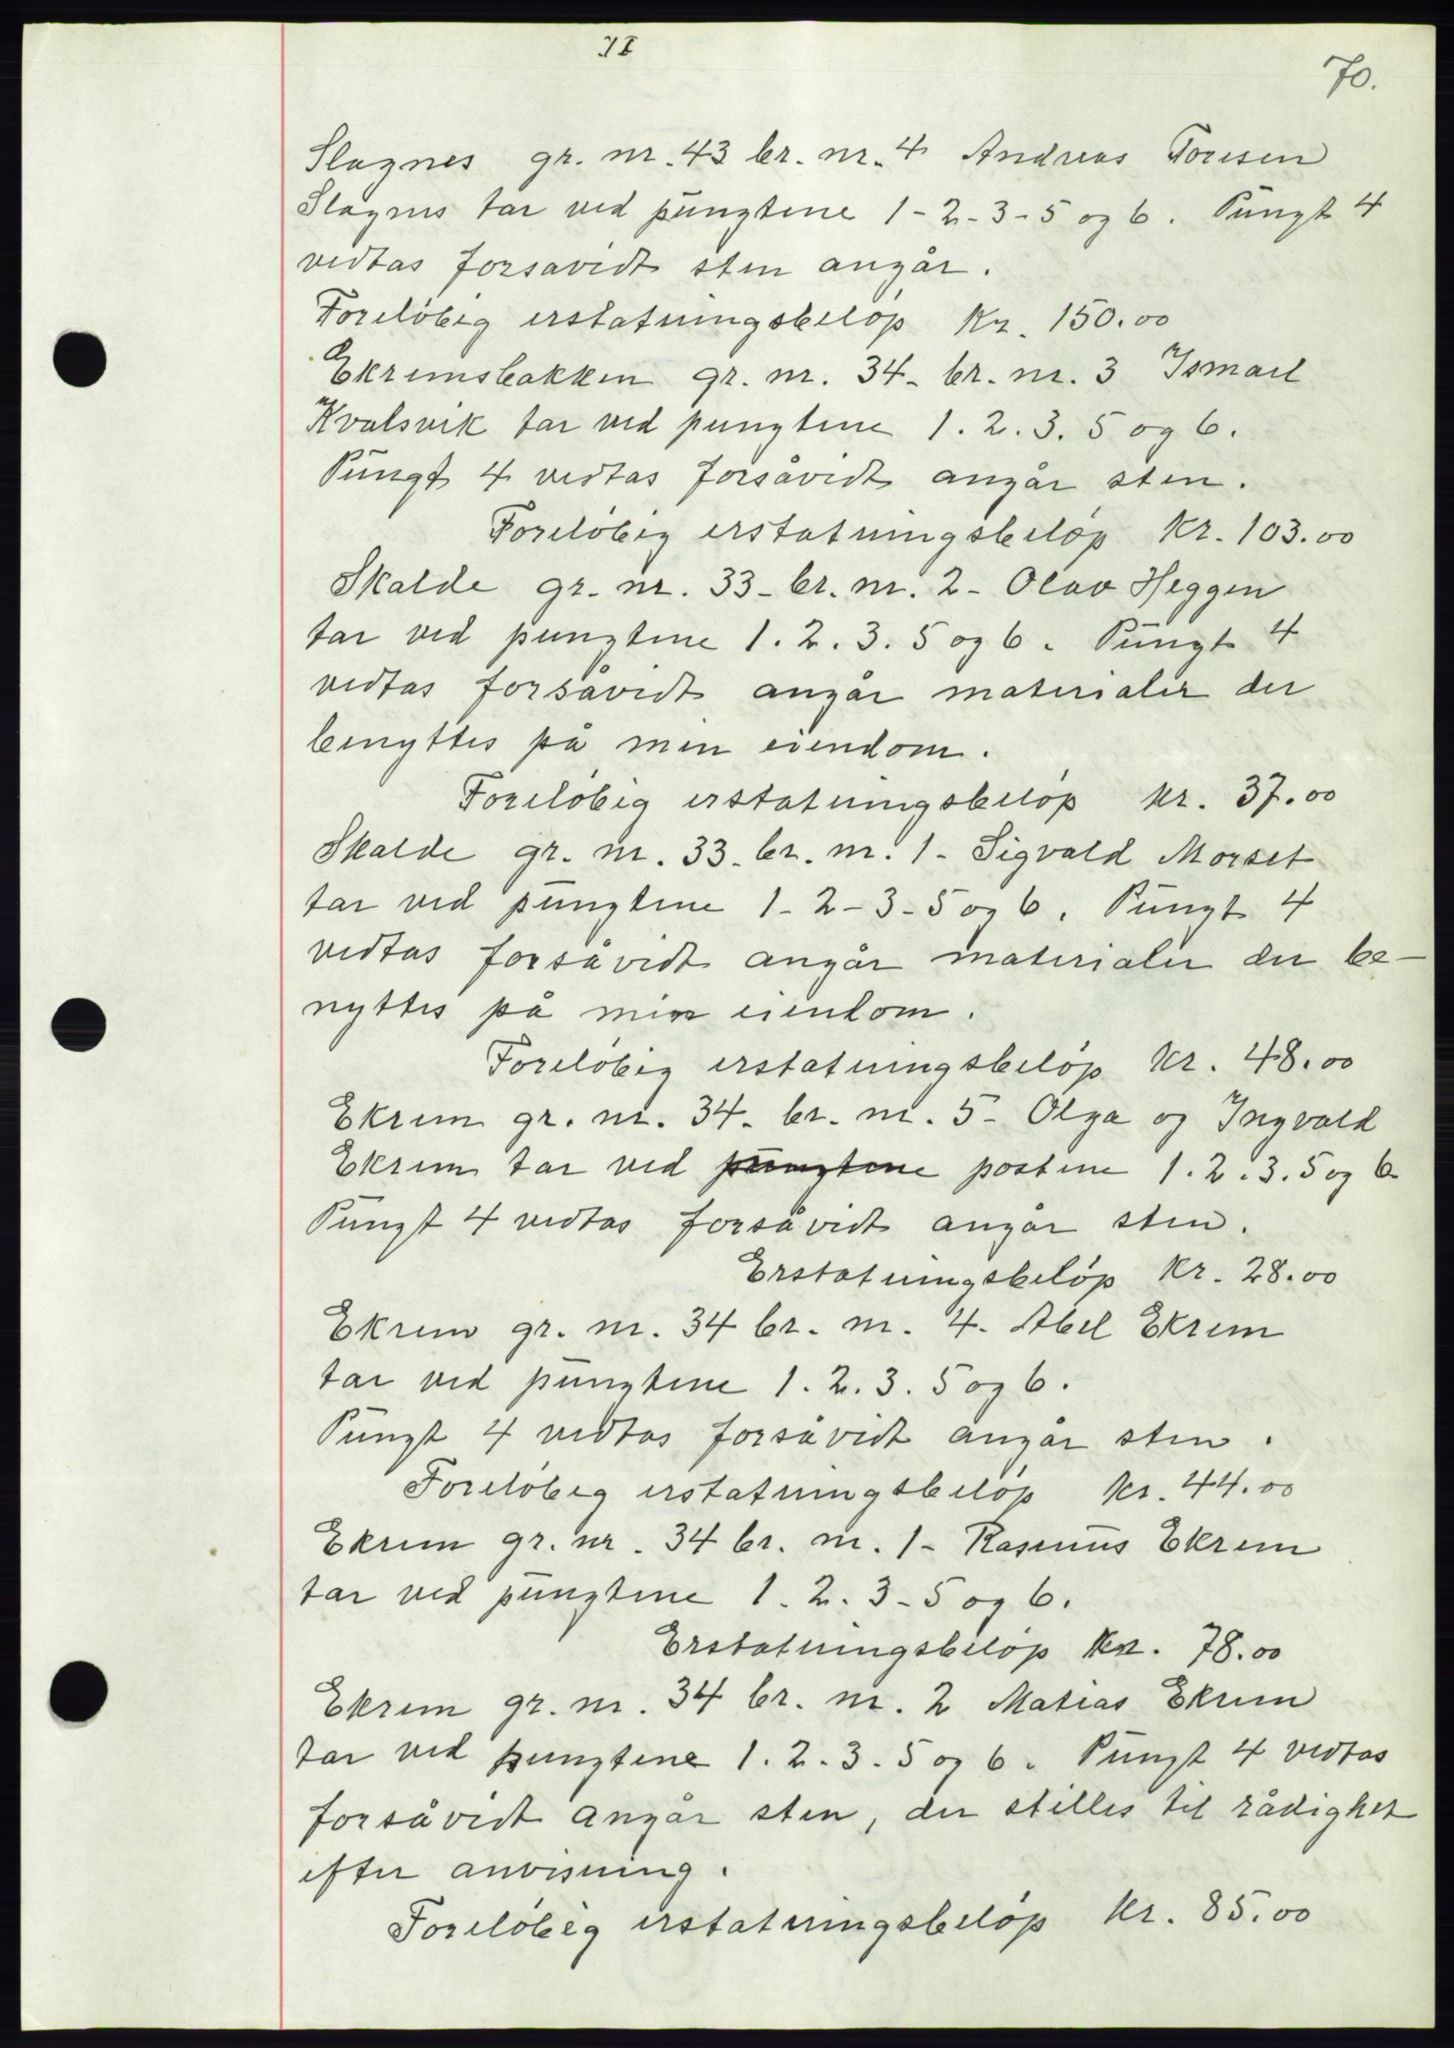 II
70.
Slagnes gr. nr. 43 br. nr. 4 Andreas Toresen
Slagnes tar ved pungtene 1-2-3-5 og 6. Pungt 4
vedtas forsavidt sten angår.
Foreløbig erstatningsbeløp Kr. 150.00
Ekremsbakken gr. nr. 34- br. nr. 3 Ismael
Kvalsvik tar ved pungtene 1.2.3.5 og 6.
Pungt 4 vedtas forsåvidt angår sten.
Foreløbig erstatningsbeløp kr. 103.00
Skalde gr. nr. 33- br. nr. 2- Olav Heggen
tar ved pungtene 1.2.3.5 og 6. Pungt 4
vedtas forsåvidt angår materialer der
benyttes på min eiendom.
Foreløbig erstatningsbeløp kr. 37.00
Skalde gr. nr. 33- br. nr. 1- Sigvald Morset
tar ved pungtene 1-2-3-5 og 6. Pungt 4
vedtas forsåvidt angår materialer der be-
nyttes på min eiendom.
Foreløbig erstatningsbeløp kr. 48.00
Ekrem gr. nr. 34- br. nr. 5- Olga og Ingvald
Ekrem tar ved pungtene postene 1.2.3.5 og 6
Pungt 4 vedtas forsåvidt angår sten.
Erstatningsbeløp kr. 28.00
Ekrem gr. nr. 34 br. nr. 4. Abel Ekrem
tar ved pungtene 1.2.3.5 og 6.
Pungt 4 vedtas forsåvidt angår sten.
Foreløbig erstatningsbeløp kr. 44.00
Ekrem gr. nr. 34 br. nr. 1- Rasmus Ekrem
tar ved pungtene 1.2.3-5 og 6.
Erstatningsbeløp kr. 78.00
Ekrem gr. nr. 34 br. nr. 2 Matias Ekrem
tar ved pungtene 1.2.3.5 og 6. Pungt 4 vedtas
forsåvidt angår sten, der stilles til rådighet
efter anvisning.
Foreløbig erstatningsbeløp kr. 85.00